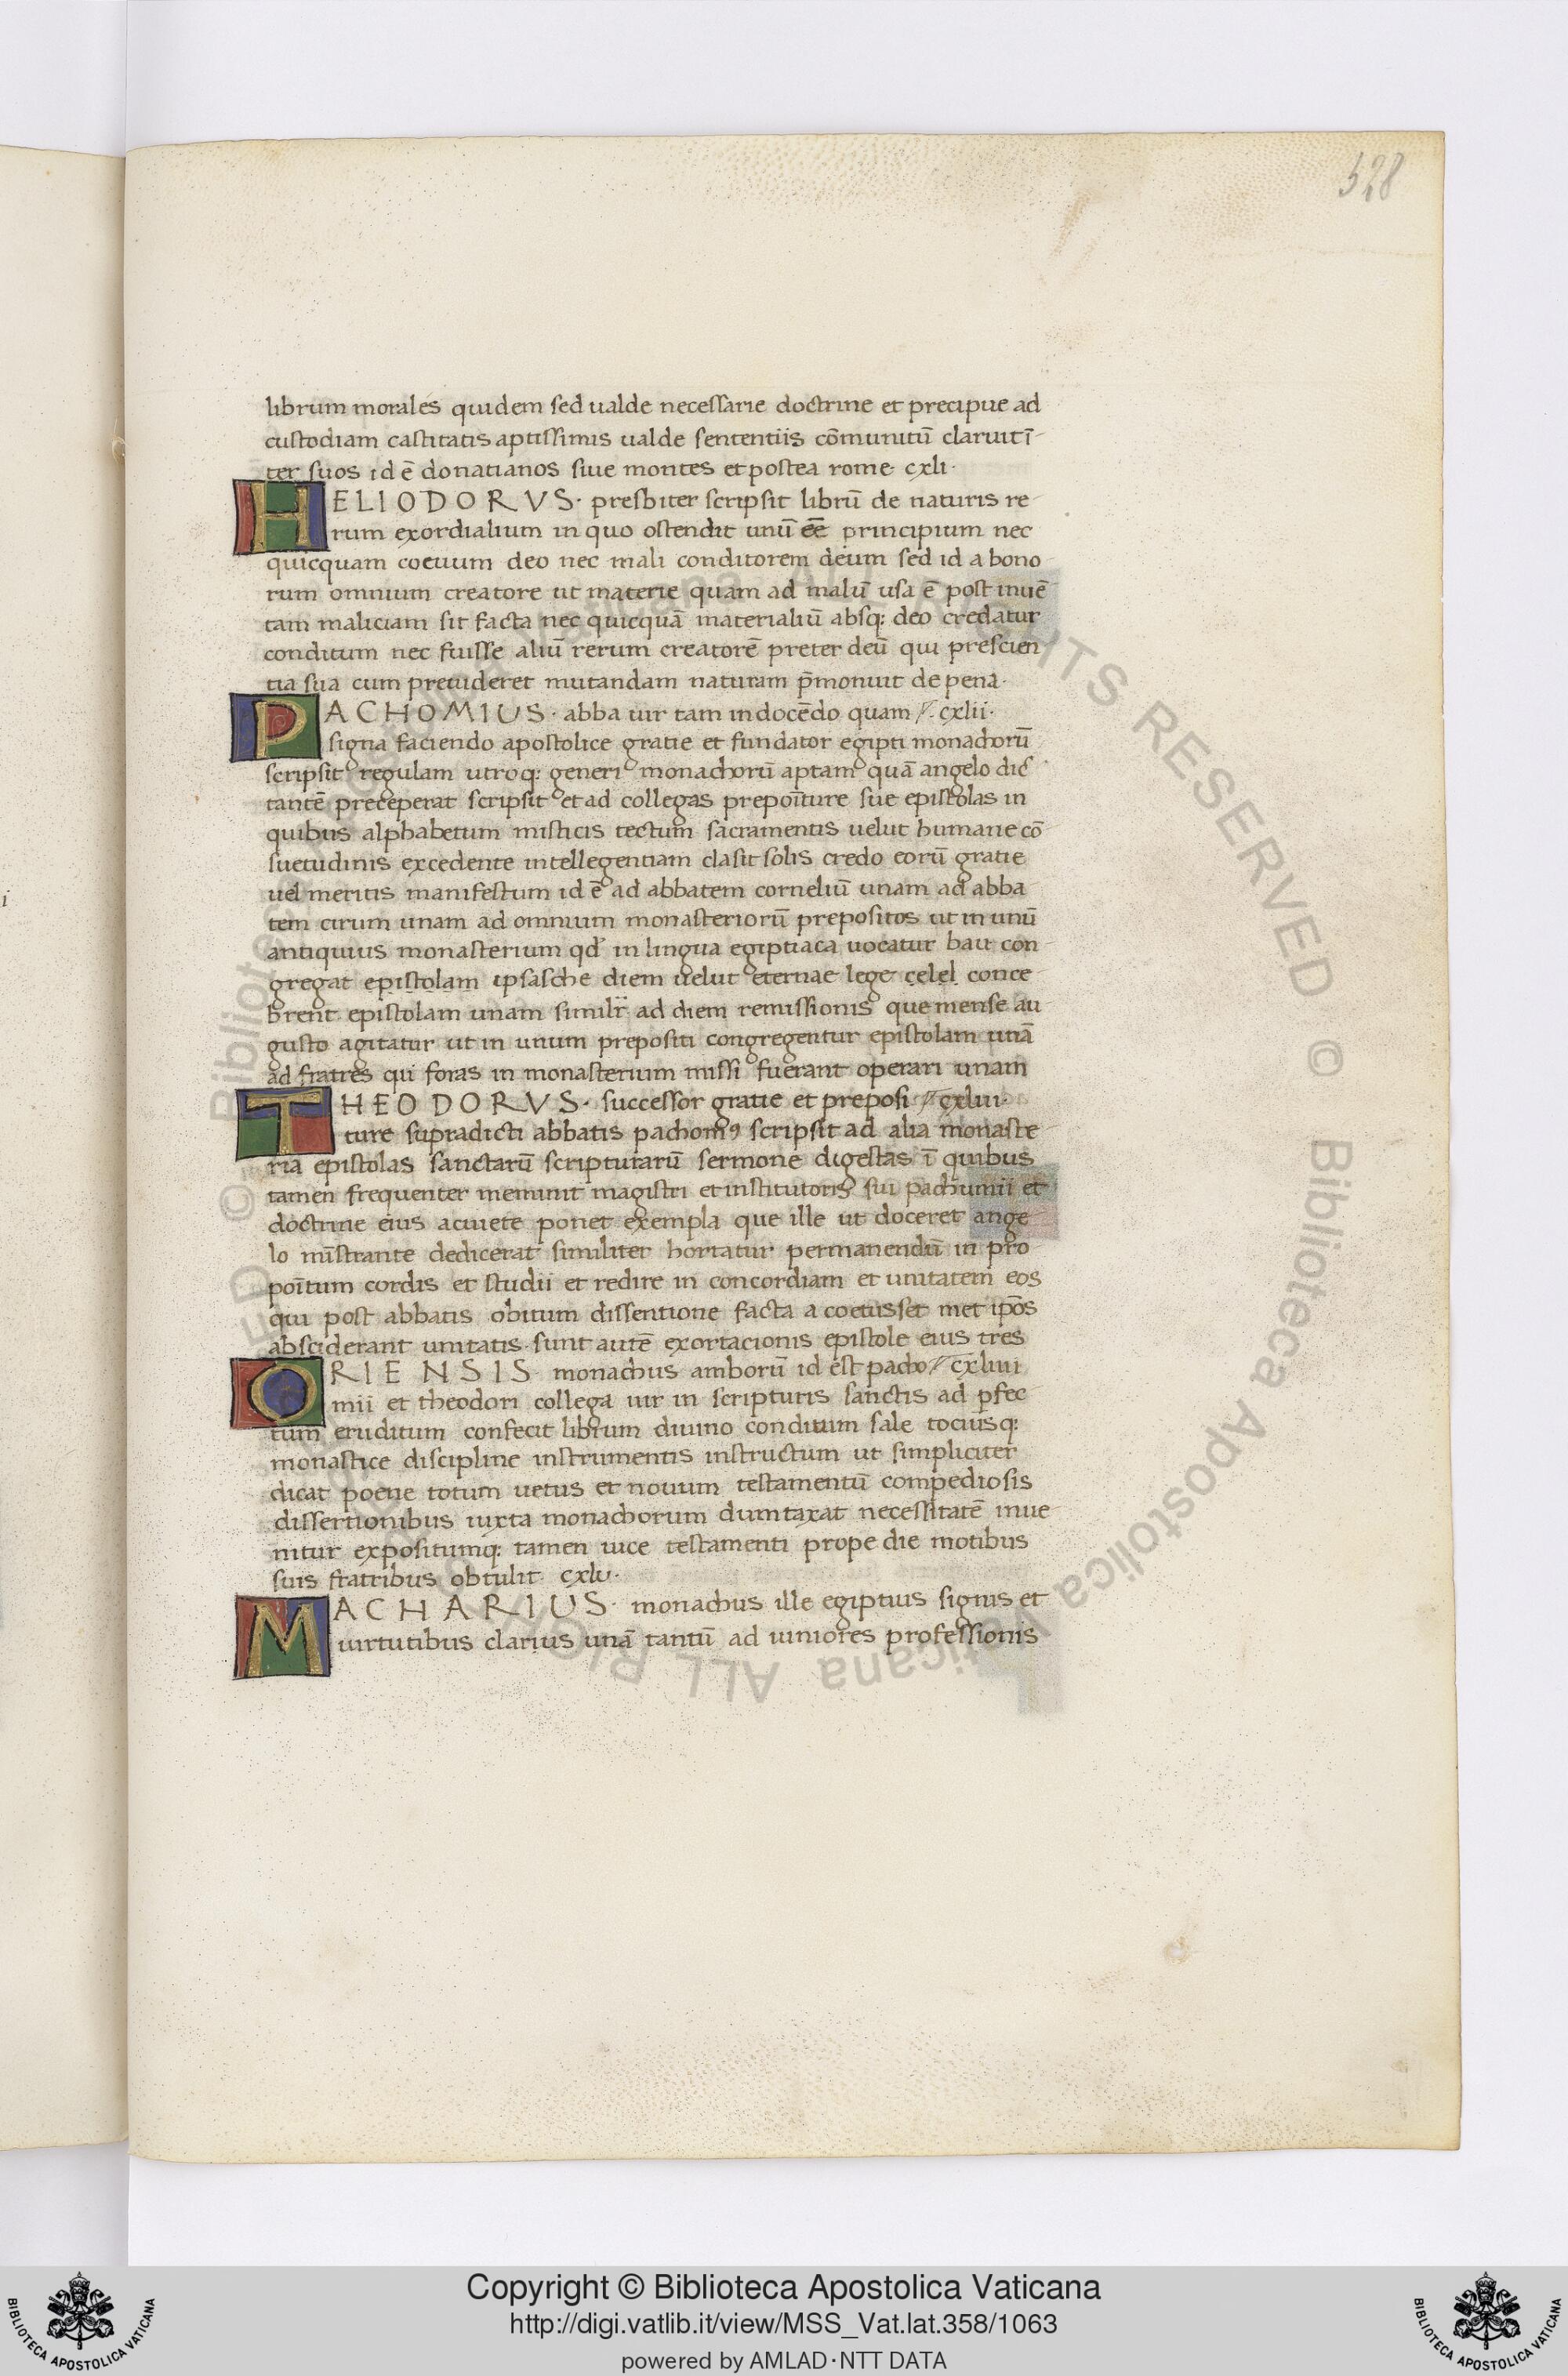 528
librum morales quidem sed ualde necessarie doctrine et precipue ad
custodiam castitatis aptissimis ualde sententiis cōmunitū claruit ī-
ter suos id ē donatianos siue montes et postea rome· cxli·
HELIODORVS· presbiter scripsit librū de naturis re-
rum exordialium in quo ostendit unū eē principium nec
quicquam coeuum deo nec mali conditorem deum sed id a bono-
rum omnium creatore ut materie quam ad malū usa ē post inuē-
tam maliciam sit facta nec quicquā materialiū absq: deo credatur
conditum nec fuisse aliū rerum creatorē preter deū qui prescien-
tia sua cum preuideret mutandam naturam p̄monuit de pena·
PACHOMIUS· abba uir tam in docēdo quam cxlii·
signa faciendo apostolice gratie et fundator egipti monachorū
scripsit regulam utroq: generi monachorū aptam quā angelo dic-
tantē preceperat scripsit et ad collegas prepoīture sue epistolas in
quibus alphabetum misticis tectum sacramentis uelut humane cō-
suetudinis excedente intellegentiam clasit solis credo eorū gratie
uel meritis manifestum id ē ad abbatem corneliū unam ad abba
tem cirum unam ad omnium monasteriorū prepositos ut in unū
antiquius monasterium qd' in lingua egiptiaca uocatur bau con-
gregat epistolam ipsasche diem uelut eternae lege celel conce-
brent epistolam unam similr̄ ad diem remissionis que mense au
gusto agitatur ut in unum prepositi congregentur epistolam unā
ad fratres qui foras in monasterium missi fuerant operari unam
THEODORVS· successor gratie et preposi cxliii·
ture supradicti abbatis pachomꝯ scripsit ad alia monaste-
ria epistolas sanctarū scripturarū sermone digestas ī quibus
tamen frequenter meminit magistri et institutoris sui pachumii et
doctrine eius acuiete ponet exempla que ille ut doceret ange-
lo mīstrante dedicerat similiter hortatur permanendū in pro-
poītum cordis et studii et redire in concordiam et unitatem eos
qui post abbatis obitum dissentione facta a coetusset met ipōs
absciderant unitatis· sunt autē exortacionis epistole eius tres
ORIENSIS· monachus amborū id est pacho cxliiii
mii et theodori collega uir in scripturis sanctis ad pfec-
tum eruditum confecit librum diuino conditum sale tociusq:
monastice discipline instrumentis instructum ut simpliciter
dicat poene totum uetus et nouum testamentū compediosis
dissertionibus iuxta monachorum dumtaxat necessitatē inue-
nitur expositumq: tamen uice testamenti prope die motibus
suis fratribus obtulit cxlv·
MACHARIUS· monachus ille egiptius signis et
uirtutibus clarius unā tantū ad iuniores professionis
© Biblioteca Apostolica Vaticana ALL RIGHTS RESERVED © Biblioteca Apostolica Vaticana ALL RIGHTS RESERVED
Copyright © Biblioteca Apostolica Vaticana
http://digi.vatlib.it/view/MSS_Vat.lat.358/1063
powered by AMLAD·NTT DATA
BIBLIOTECA APOSTOLICA VATICANA
BIBLIOTECA APOSTOLICA VATICANA